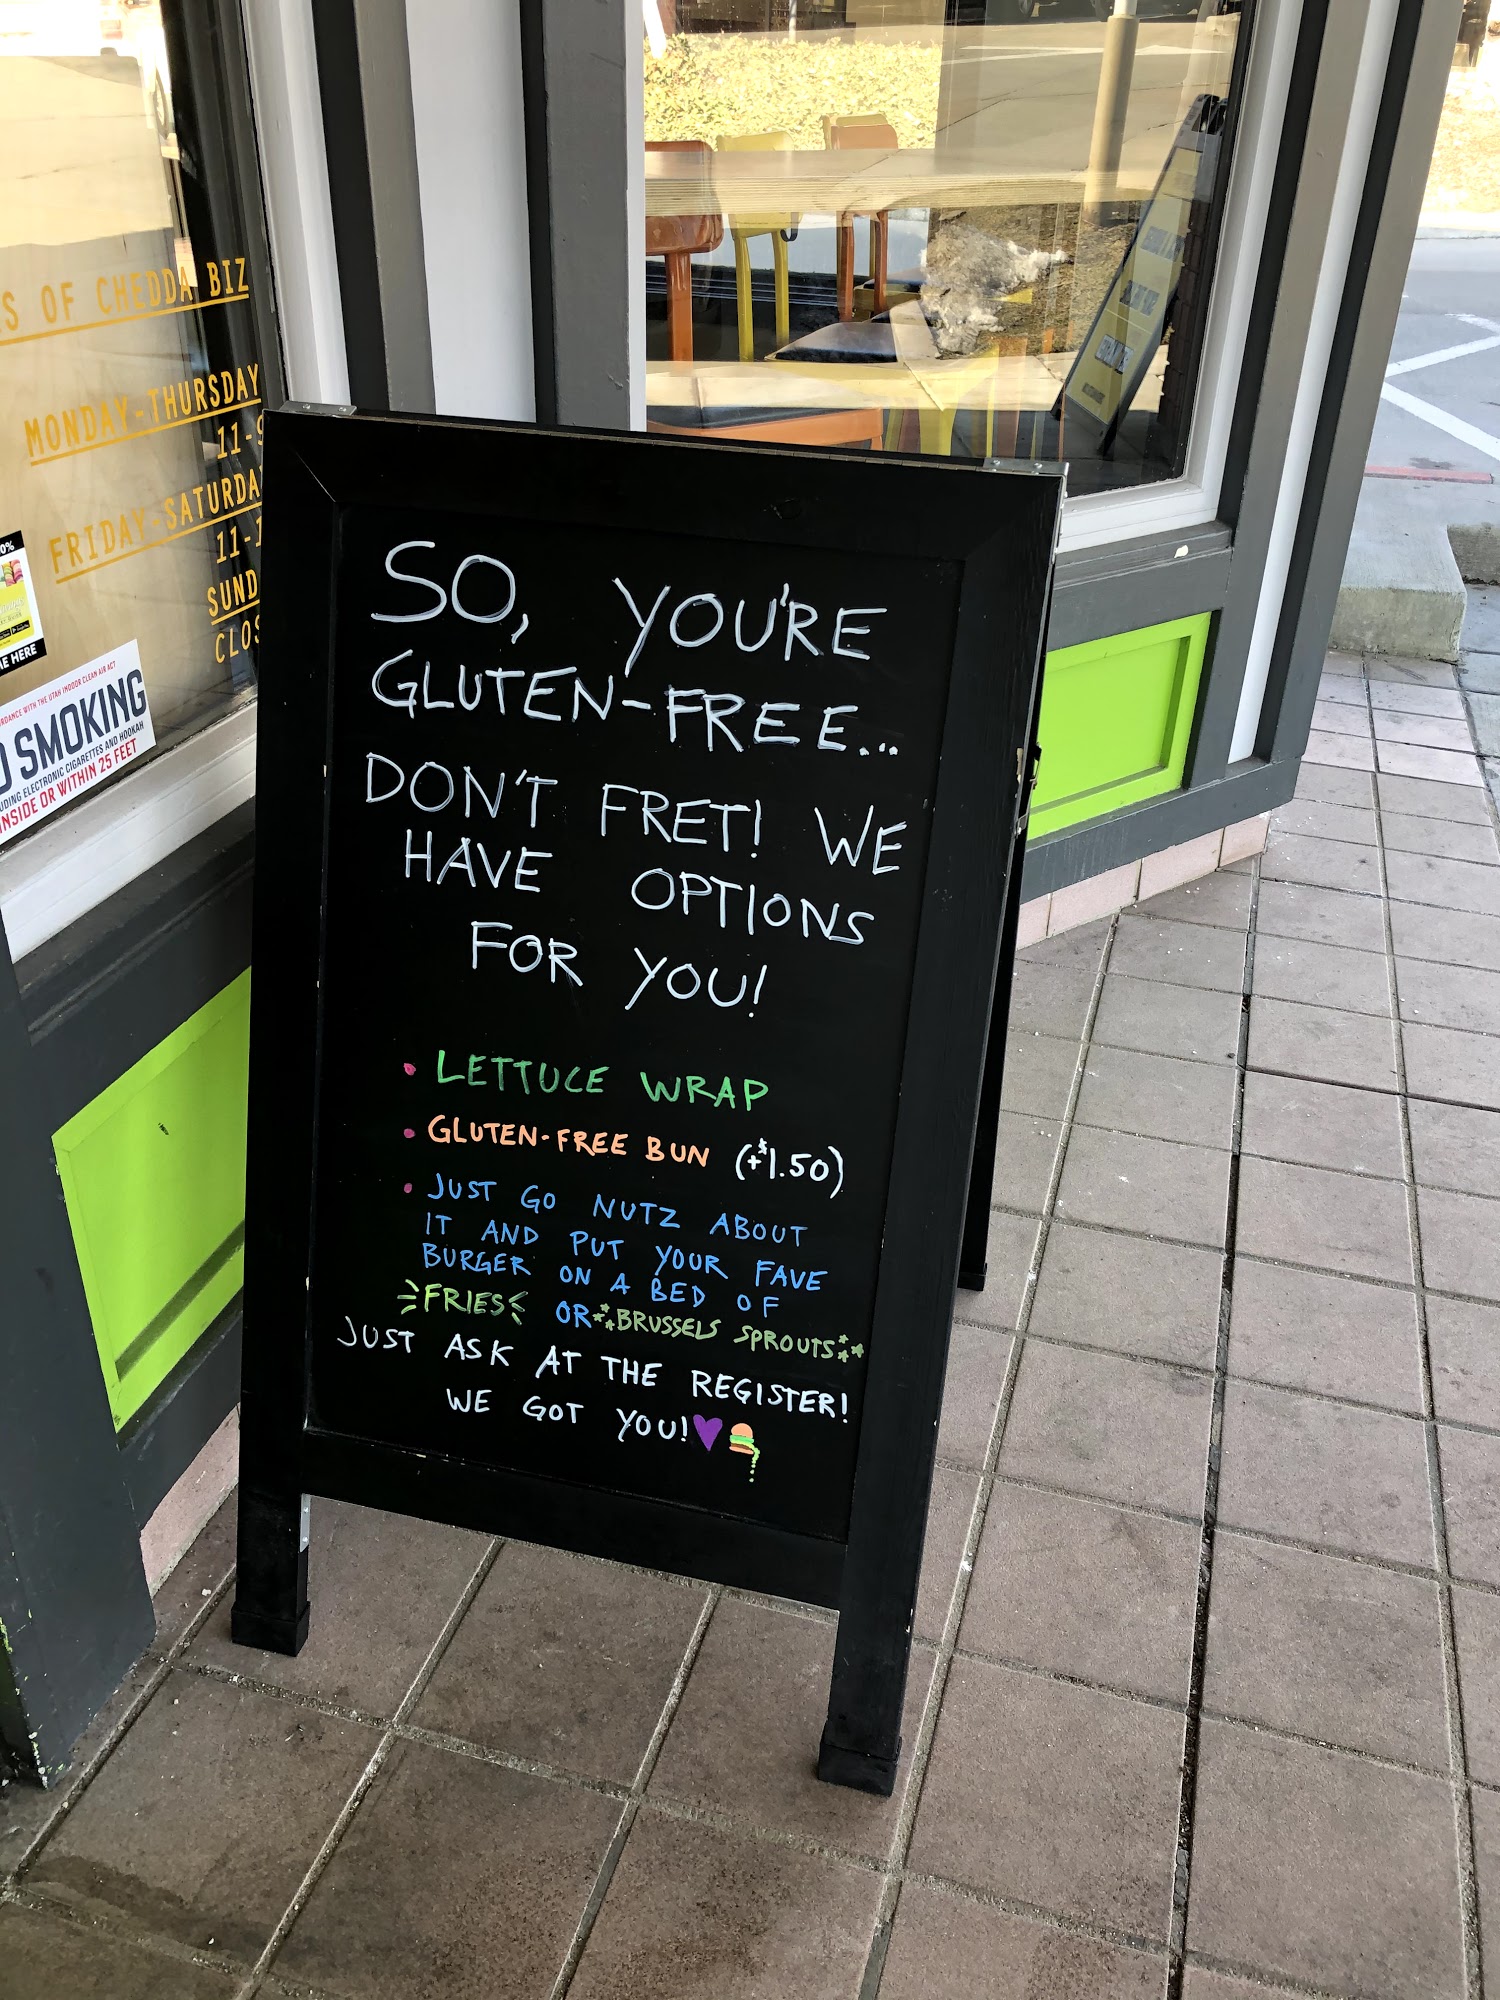 OF CHEDDA BIZ
MONDAY-THURSDAY
FRIDAY-SATURDA
SUND
CLOS
HERE
UTAH INDOOR CLEAN AIR ACT
SMOKING
ELECTRONIC CIGARETTES AND HOOKAH
INSIDE OR WITHIN 25 FEET
SO, YOU'RE
GLUTEN-FREE...
DON'T FRET! WE
HAVE OPTIONS
FOR YOU!
• LETTUCE WRAP
• GLUTEN-FREE BUN (+$1.50)
• JUST GO NUTZ ABOUT
IT AND PUT YOUR FAVE
BURGER ON A BED OF
FRIES OR BRUSSELS SPROUTS
JUST ASK AT THE REGISTER!
WE GOT YOU!